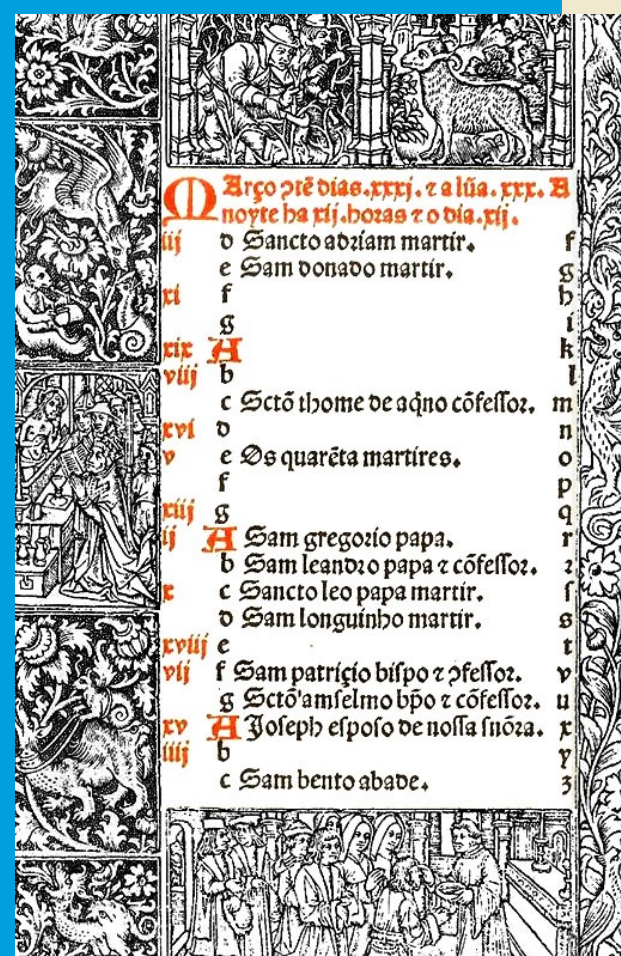 Março ↄtẽ dias.xxxj. ⁊ a lũa. xxx. A
noyte ha xij. horas ⁊ o dia. xij.
iij d Sancto adriam martir. f
e Sam donado martir. g
xi f h
g i
xix A k
viij b l
c Sctõ thome de aq̃no cõfessor. m
xvi d n
v e Os quarẽta martires. o
f p
xiij g q
ij A Sam gregorio papa. r
b Sam leandro papa ⁊ cõfessor. ꝛ
x c Sancto leo papa martir. ſ
d Sam longuinho martir. s
xviij e t
vij f Sam patriçio bispo ⁊ ↄfessor. v
g Sctõ anselmo bp̃o ⁊ cõfessor. u
xv A Joseph esposo de nossa sñora. x
iiij b y
c Sam bento abade. z